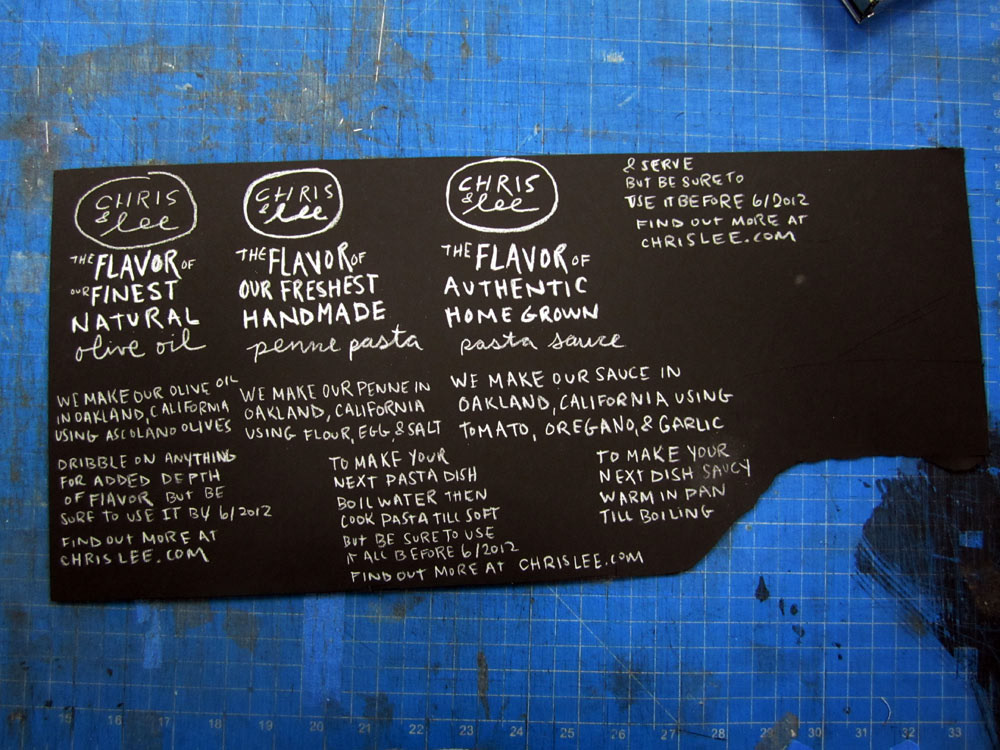 CHRIS
& lee
THE FLAVOR OF
OUR FINEST
NATURAL
olive oil
WE MAKE OUR OLIVE OIL
IN OAKLAND, CALIFORNIA
USING ASCOLANO OLIVES
DRIBBLE ON ANYTHING
FOR ADDED DEPTH
OF FLAVOR BUT BE
SURE TO USE IT BY 6/2012
FIND OUT MORE AT
CHRISLEE.COM
CHRIS
& lee
THE FLAVOR OF
OUR FRESHEST
HANDMADE
penne pasta
WE MAKE OUR PENNE IN
OAKLAND, CALIFORNIA
USING FLOUR, EGG, & SALT
TO MAKE YOUR
NEXT PASTA DISH
BOIL WATER THEN
COOK PASTA TILL SOFT
BUT BE SURE TO USE
IT ALL BEFORE 6/2012
FIND OUT MORE AT CHRISLEE.COM
CHRIS
& lee
THE FLAVOR OF
AUTHENTIC
HOME GROWN
pasta sauce
WE MAKE OUR SAUCE IN
OAKLAND, CALIFORNIA USING
TOMATO, OREGANO, & GARLIC
TO MAKE YOUR
NEXT DISH SAUCY
WARM IN PAN
TILL BOILING
& SERVE
BUT BE SURE TO
USE IT BEFORE 6/2012
FIND OUT MORE AT
CHRISLEE.COM
15 16 17 18 19 20 21 22 23 24 25 26 27 28 29 30 31 32 33